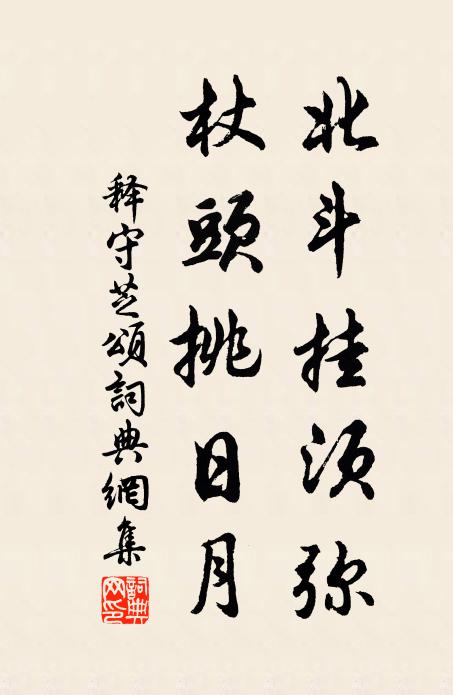 北斗挂须弥
杖頭挑日月
释守芝頌詞典網集
詞典网印